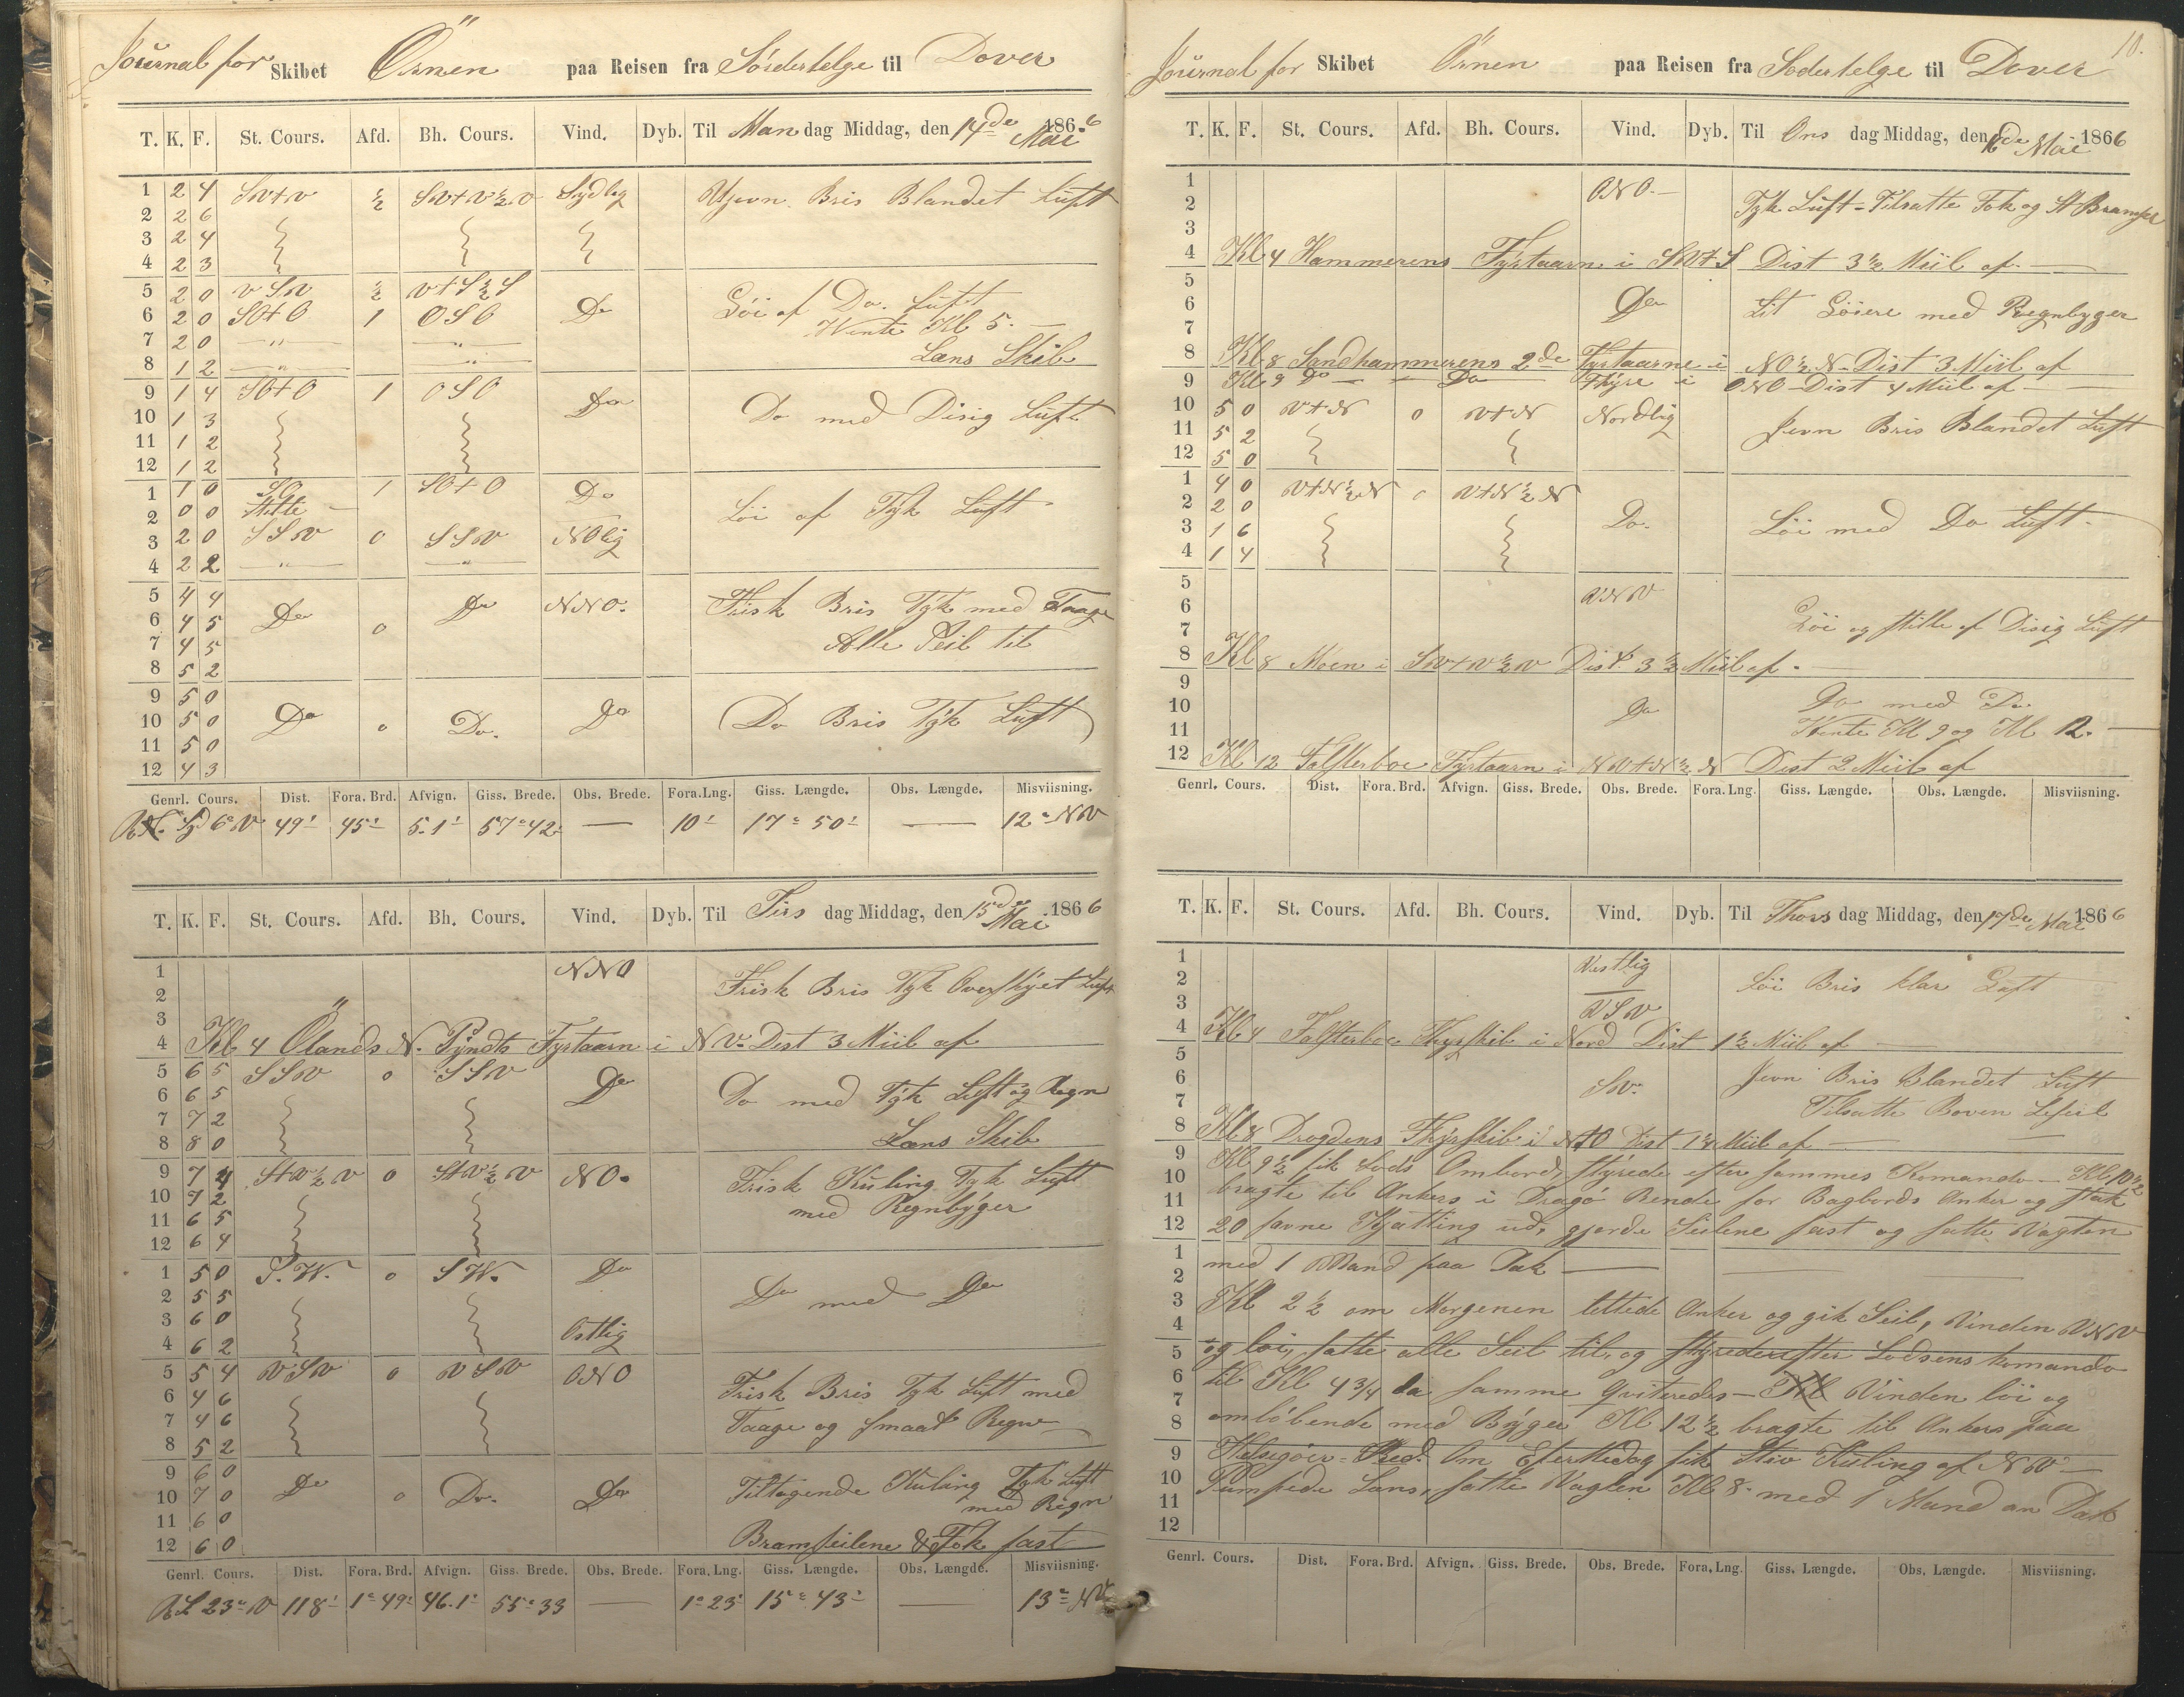 Journal for Skibet Örnen paa Reisen fra Södertelge til Dover
T. K. F. St. Cours. Afd. Bh. Cours. Vind. Dyb. Til Mandag Middag, den 14de Mai 1866
1 2 4 SV+V ½ SV+V½V Sydlig Ujevn Bris Blandet Luft
2 2 6
3 2 4
4 2 3
5 2 0 VSV ½ V+S½S
6 2 0 SO+O 1 OSO Do Löi af Do. Luft
7 2 0 —"— —"— Wente Kl 5. —
8 1 2 —"— —"— Læns Skib
9 1 4 SO+O 1 OSO Do
10 1 3 Do med Disig Luft
11 1 2
12 1 2
1 1 0 SO 1 SO+O Do
2 0 0 Stille — Löi af Tyk Luft
3 2 0 SSV 0 SSV NOlig
4 2 2 —"— —"—
5 4 4 Do Do NNO. Frisk Bris Tyk med Taage
6 4 5 0
7 4 5 Alle Seil til
8 5 2
9 5 0
10 5 0 Do 0 Do. Do Do Bris Tyk Luft
11 5 0
12 4 3
Genrl. Cours. Dist. Fora. Brd. Afvign. Giss. Brede. Obs. Brede. Fora. Lng. Giss. Længde. Obs. Længde. Misviisning.
Syd 6° V 49' 45' 5.1' 57°42' — 10' 17° 50' — 12° NV
T. K. F. St. Cours. Afd. Bh. Cours. Vind. Dyb. Til Tirsdag Middag, den 15de Mai 1866
1 NNO
2 Frisk Bris Tyk Overskyet Luft
3
4 Kl 4 Ölands N. Pyndts Fyrtaarn i NV. Dist 3 Miil af
5 6 5 SSV 0 SSV Do
6 6 5 Do med Tyk Luft og Regn
7 7 2
8 8 0 Læns Skib
9 7 4 S+V½V 0 S+V½V NO. Frisk Kuling Tyk Luft
10 7 2 med Regnbyger
11 6 5
12 6 4
1 5 0 S.W. 0 SW. Do
2 5 5 Do med Do
3 6 0
4 6 2 Ostlig
5 5 4 VSV 0 VSV ONO
6 4 6 Frisk Bris Tyk Luft med
7 4 6 Taage og smaat Regn
8 5 2
9 6 0 Do
10 7 0 0 Do. Do Tiltagende Kuling Tyk Luft
11 6 0 med Regn
12 6 0 Bramseilene & Fok fast
Genrl. Cours. Dist. Fora. Brd. Afvign. Giss. Brede. Obs. Brede. Fora. Lng. Giss. Længde. Obs. Længde. Misviisning.
S 23° V 118' 1°49' 46.1' 55°33 — 1°23' 15° 43' — 13° NV
10.
Journal for Skibet Örnen paa Reisen fra Södertelge til Dover
T. K. F. St. Cours. Afd. Bh. Cours. Vind. Dyb. Til Onsdag Middag, den 16de Mai 1866
1 ONO. —
2 Tyk Luft - Tilsatte Fok og St Bramseil
3
4 Kl 4 Hammerens Fyrtaarn i SV+S Dist 3½ Miil af —
5
6 Do Lit Löiere med Regnbyger
7
8 Kl 8 Sandhammerens 2de Fyrtaarne i NO½N - Dist 3 Miil af
9 Kl 9 Do — " — Do Fyre i ONO - Dist 4 Miil af —
10 5 0 V+N 0 V+N Nordlig
11 5 2 Jevn Bris Blandet Luft
12 5 0
1 4 0 V+N½N 0 V+N½N
2 2 0
3 1 6 Do. Löi med Do Luft
4 1 4
5
6 VNV
7 Löi og stille af Disig Luft
8 Kl 8 Moen i SV+V½V Dist 3½ Miil af. —
9
10 Do Do med Do
11 Wente Kl 9 og Kl 12. —
12 Kl 12 Falsterboe Fyrtaarn i NV+N½N Dist 2 Miil af
Genrl. Cours. Dist. Fora. Brd. Afvign. Giss. Brede. Obs. Brede. Fora. Lng. Giss. Længde. Obs. Længde. Misviisning.
T. K. F. St. Cours. Afd. Bh. Cours. Vind. Dyb. Til Thorsdag Middag, den 17de Mai 1866
1 Vestlig
2 Löi Bris klar Luft
3 VSV
4 Kl 4 Falsterboe Fyrskib i Nord Dist 1½ Miil af —
5
6 SV. Jevn Bris Blandet Luft
7 Tilsatte Boven Leseil
8 Kl 8 Drogdens Fyrskib i N+O Dist 1¼ Miil af —
9 Kl 9½ fik Lods Ombord, styrede efter sammes Komando — Kl 10½
10 bragte til Ankers i Dragö Rende for Bagbords Anker og stak
11 20 favne Kjætting ud, gjorde Seilene fast og satte Vagten
12
1 med 1 Mand paa Dæk —
2
3 Kl 2½ om Morgenen lettede Anker og gik Seil, Vinden VNV
4
5 og löi, satte alle Seil til, og styrede efter Lodsens komando
6 til Kl 4¾ da samme qviteredes — Vinden löi og
7
8 omlöbende med Byger Kl 12½ bragte til Ankers paa
9 Helsigöer Red. Om Eftermidag fik Stiv Kuling af NW —
10 Pumpede Læns, satte Vagten Kl 8 med 1 Mand an Dæk
11
12
Genrl. Cours. Dist. Fora. Brd. Afvign. Giss. Brede. Obs. Brede. Fora. Lng. Giss. Længde. Obs. Længde. Misviisning.